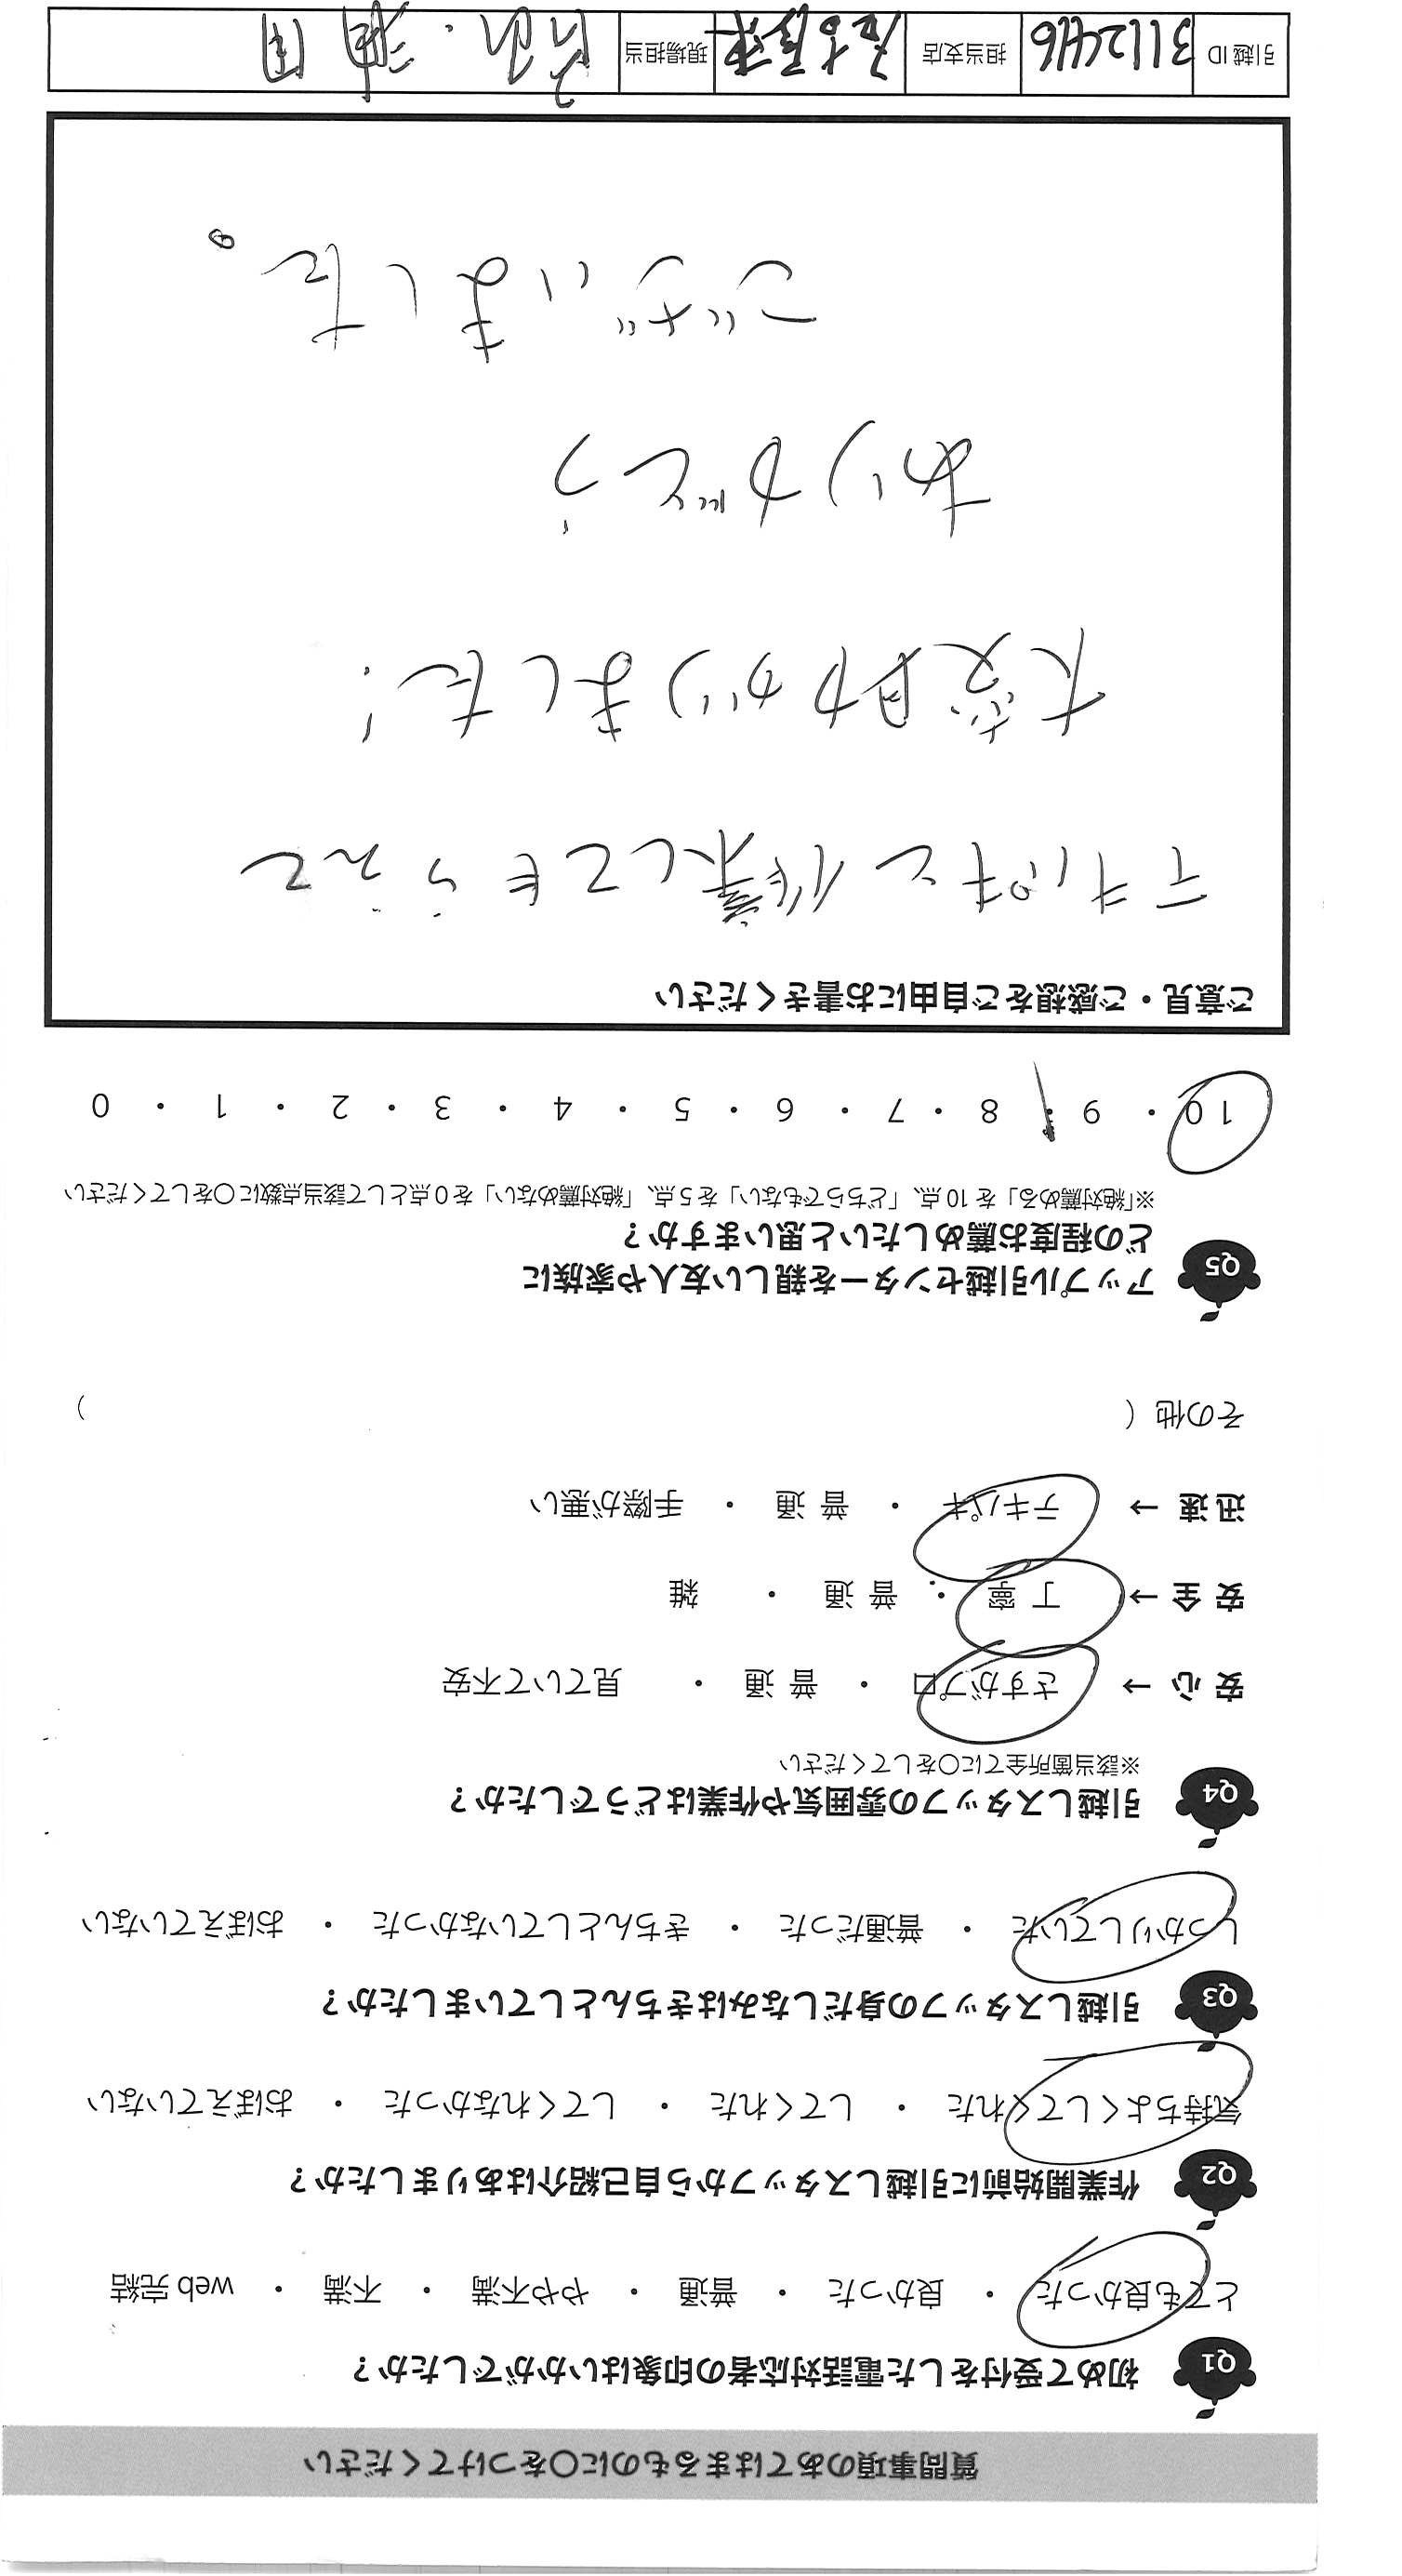 質問事項のあてはまるものに〇をつけてください
Q1 初めて受付をした電話対応者の印象はいかがでしたか？
とても良かった ・ 良かった ・ 普通 ・ やや不満 ・ 不満 ・ web完結
Q2 作業開始前に引越しスタッフから自己紹介はありましたか？
気持ちよくしてくれた ・ してくれた ・ してくれなかった ・ おぼえていない
Q3 引越しスタッフの身だしなみはきちんとしていましたか？
しっかりしていた ・ 普通だった ・ きちんとしていなかった ・ おぼえていない
Q4 引越しスタッフの雰囲気や作業はどうでしたか？
※該当箇所全てに〇をしてください
安心 → さすがプロ ・ 普通 ・ 見ていて不安
安全 → 丁寧 ・ 普通 ・ 雑
迅速 → テキパキ ・ 普通 ・ 手際が悪い
その他（ ）
Q5 アップル引越センターを親しい友人や家族に
どの程度お薦めしたいと思いますか？
※「絶対薦める」を10点、「どちらでもない」を5点、「絶対薦めない」を0点として該当点数に〇をしてください
10 ・ 9 ・ 8 ・ 7 ・ 6 ・ 5 ・ 4 ・ 3 ・ 2 ・ 1 ・ 0
ご意見・ご感想をご自由にお書きください
テキパキと作業してもらえて
大変助かりました！
ありがとう
ございました。
引越ID 3112446 担当支店 現場担当